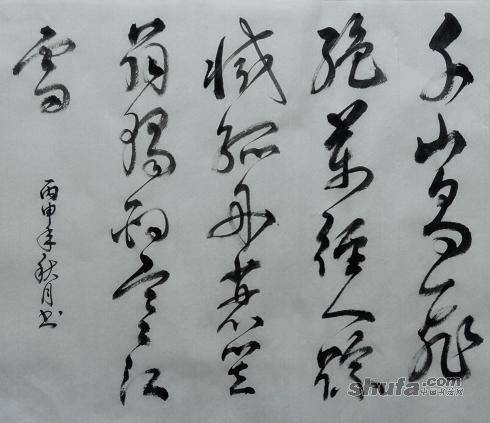 千山鸟飛
絶萬徑人踪
滅孤舟蓑笠
翁獨釣寒江
雪
丙申年秋月书
shufa.com
中国书法网